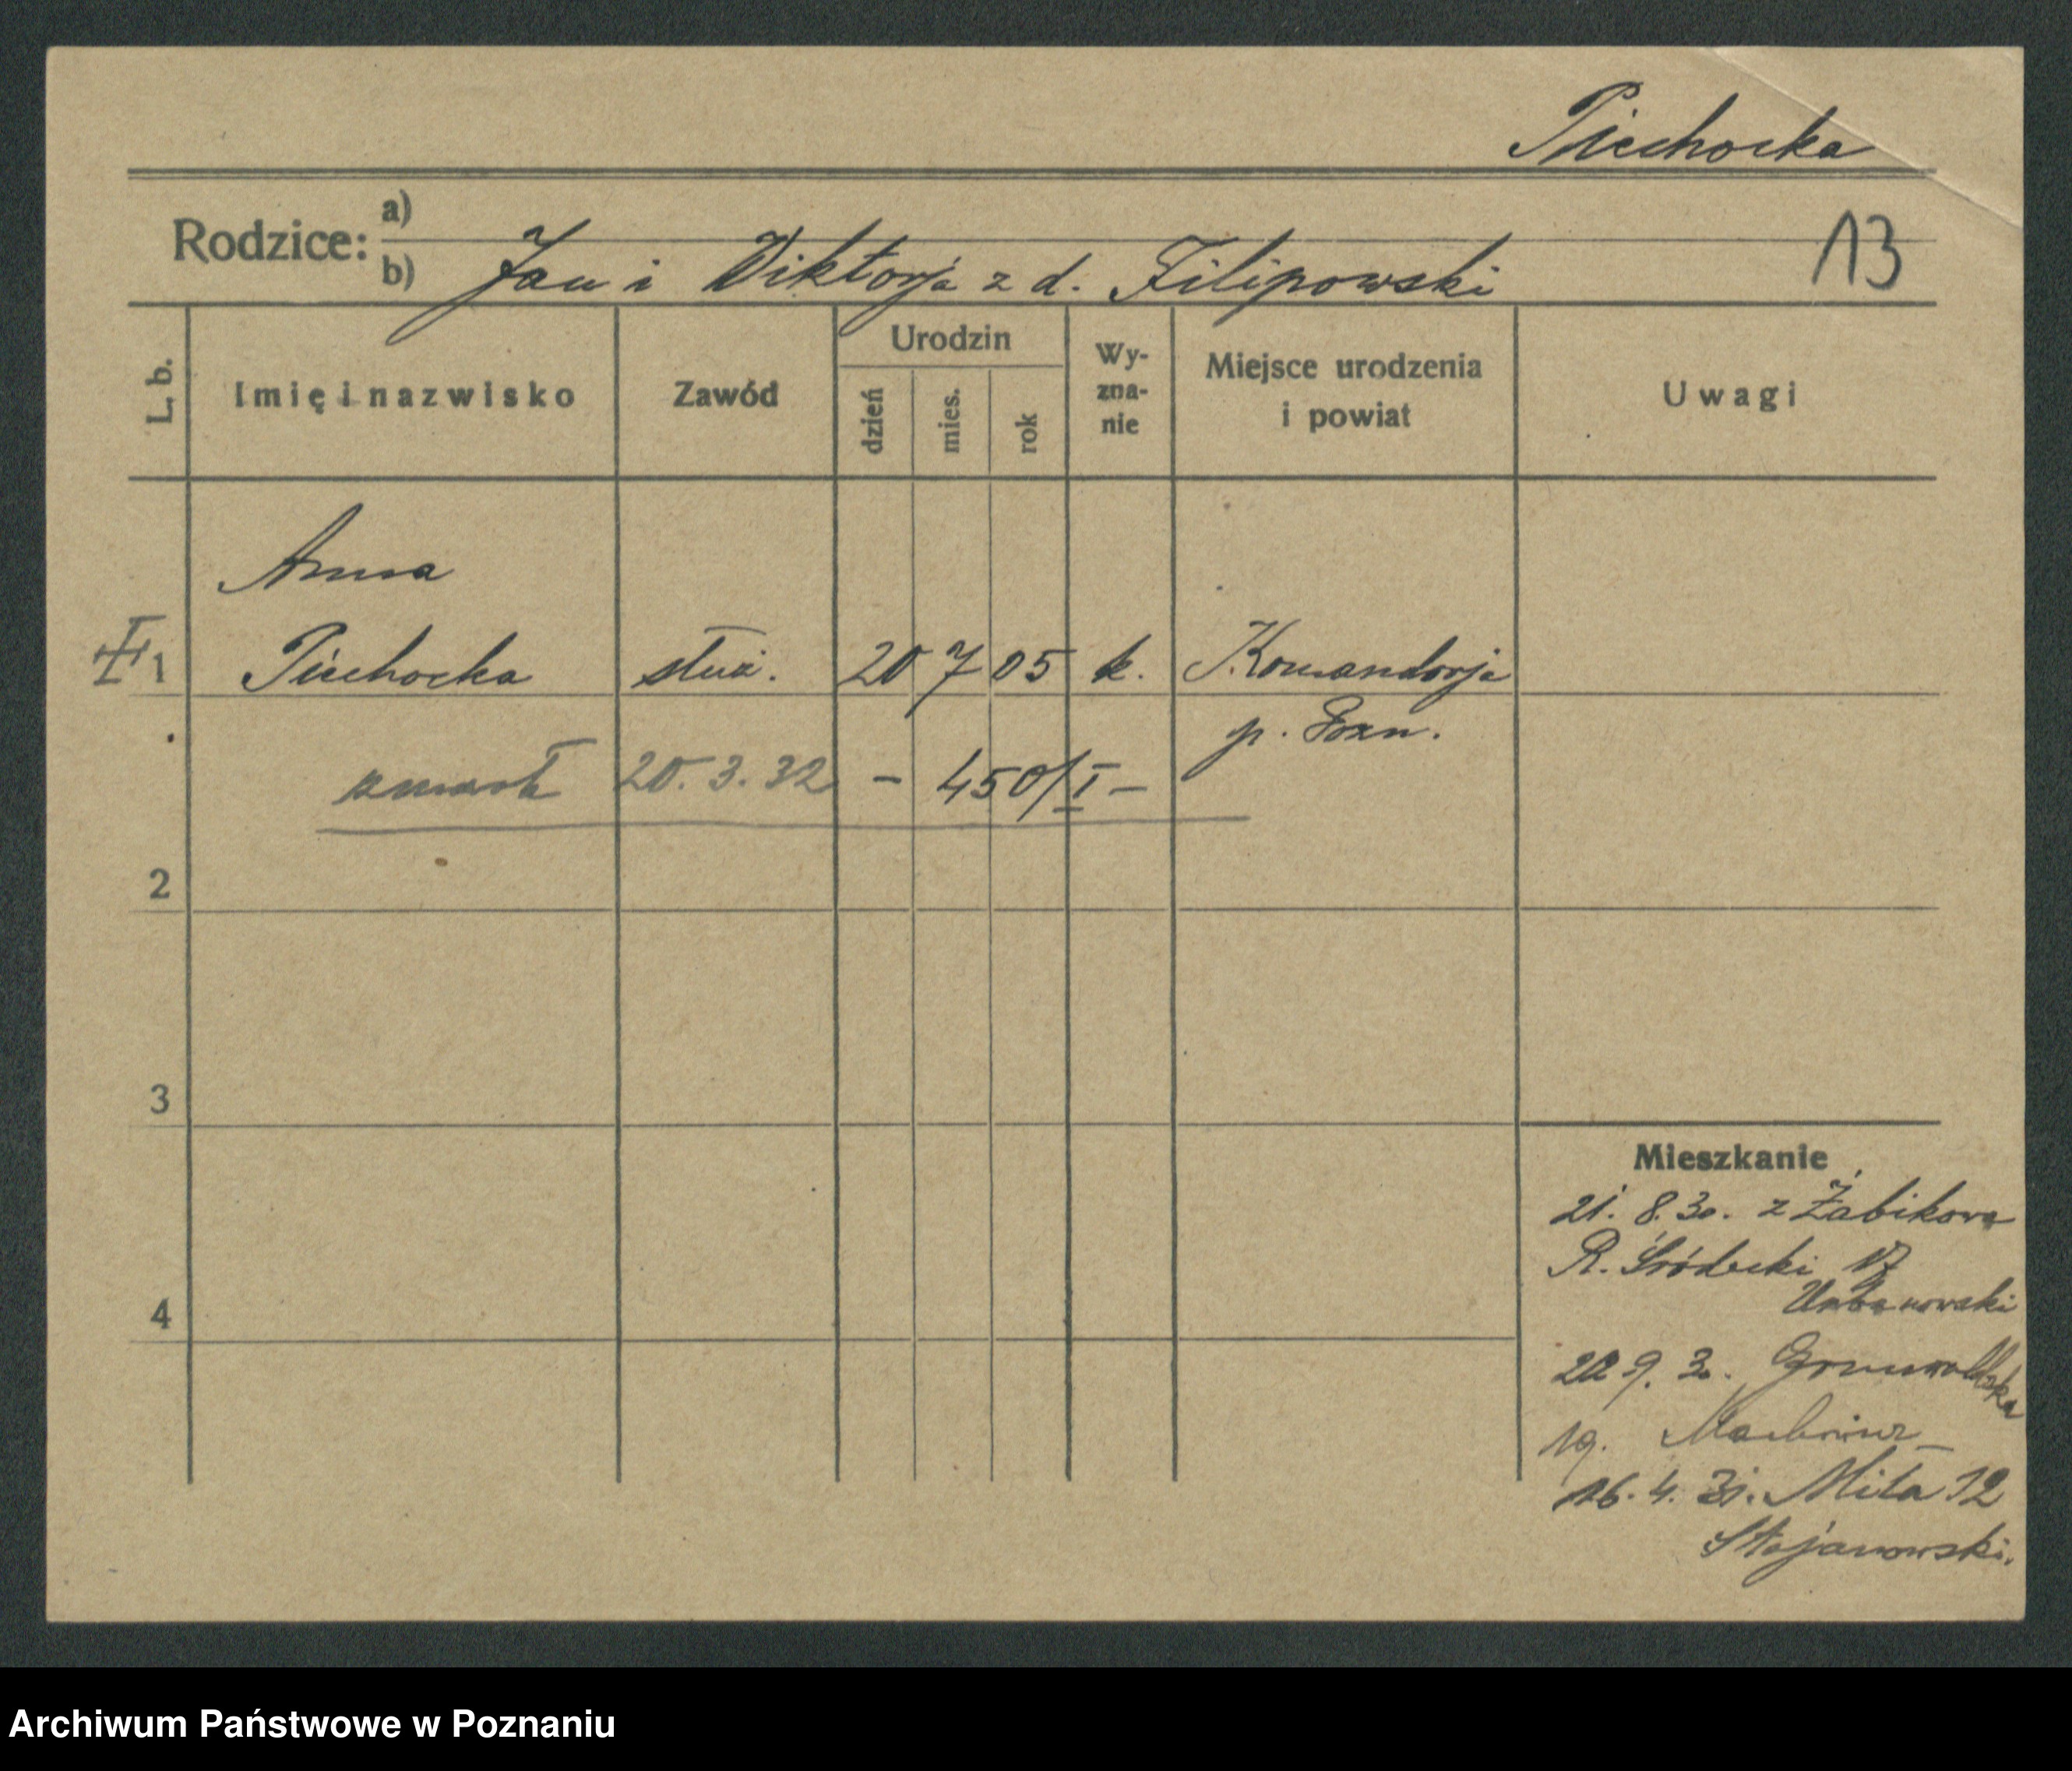 Piechocka
Rodzice: a)
b) Jan i Viktorja z d. Filipowski
13
L. b.
Imię i nazwisko
Zawód
Urodzin
dzień
mies.
rok
Wy-
zna-
nie
Miejsce urodzenia
i powiat
Uwagi
Anna
1 Piechocka służ. 20 7 05 k. Komandorja
p. Pozn.
zmarł 20.3.32 – 450/I –
2
3
4
Mieszkanie
21. 8. 30. z Żabikowa
R. Śródecki 17
Urbanowski
9. 30. Grunwaldzka
19.
16. 4. 31. Miła 12
Stojanowski.
Archiwum Państwowe w Poznaniu